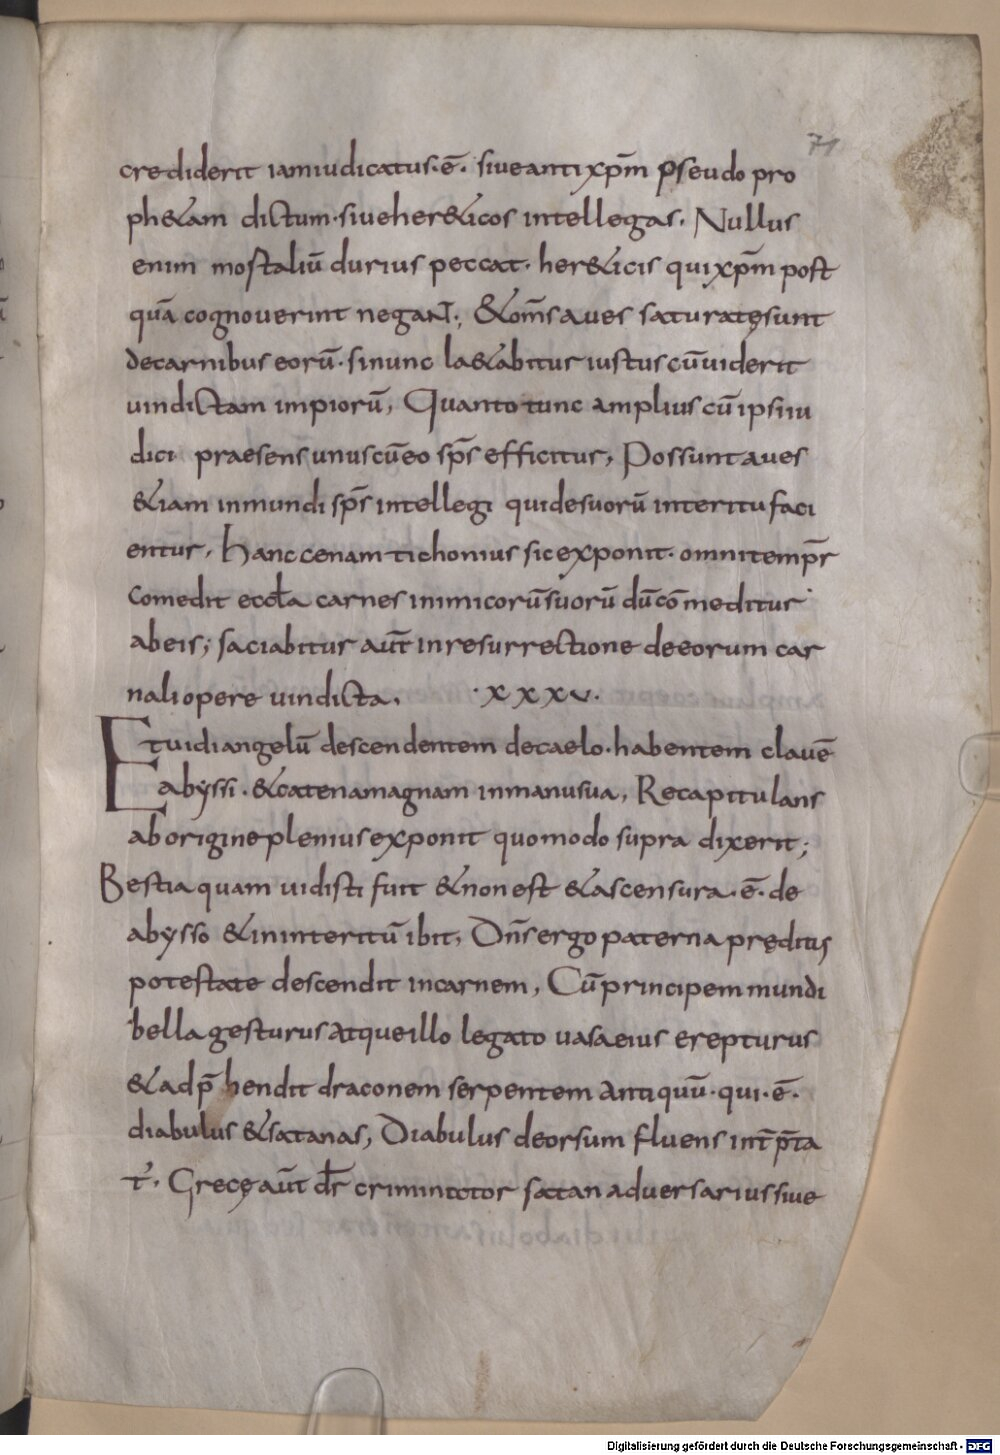 71
crediderit iam iudicatus·ē· siue antixp̄m pseudo pro
ph&am dictum· siue her&icos intellegas. Nullus
enim mortaliū durius peccat· her&icis qui xp̄m post
quā cognouerint negant; &om̄s aues saturatę sunt
de carnibus eorū· si nunc la&abitur iustus cū uiderit
uindictam impiorū, Quanto tunc amplius cū ipsi iu
dici praesens unus cū eo sp̄s efficitur, Possunt aues
&iam inmundi sp̄s intellegi qui de suorū interitu saci
entur, hanc cenam tichonius sic exponit· omni temp̄r
comedit eccl̄a carnes inimicorū suorū dū cōmeditur
ab eis; saciabitur aūt in resurrectione de eorum car
nali opere uindicta. ·xxxv·
Et uidi angelū descendentem de caelo· habentem clauē
abyssi· & catena magnam in manu sua, Recapitulans
ab origine plenius exponit quomodo supra dixerit;
Bestia quam uidisti fuit & non est & ascensura·ē· de
abysso & in interitū ibit, Dn̄s ergo paterna preditus
potestate descendit in carnem, Cū principem mundi
bella gesturus atque illo legato uasa eius erepturus
& adp̄hendit draconem serpentem antiquū· qui·ē·
diabulus & satanas, Diabulus deorsum fluens int̄p̄ta
t'. Grecę aūt dr̄ criminator satan aduersarius siue
Digitalisierung gefördert durch die Deutsche Forschungsgemeinschaft - DFG